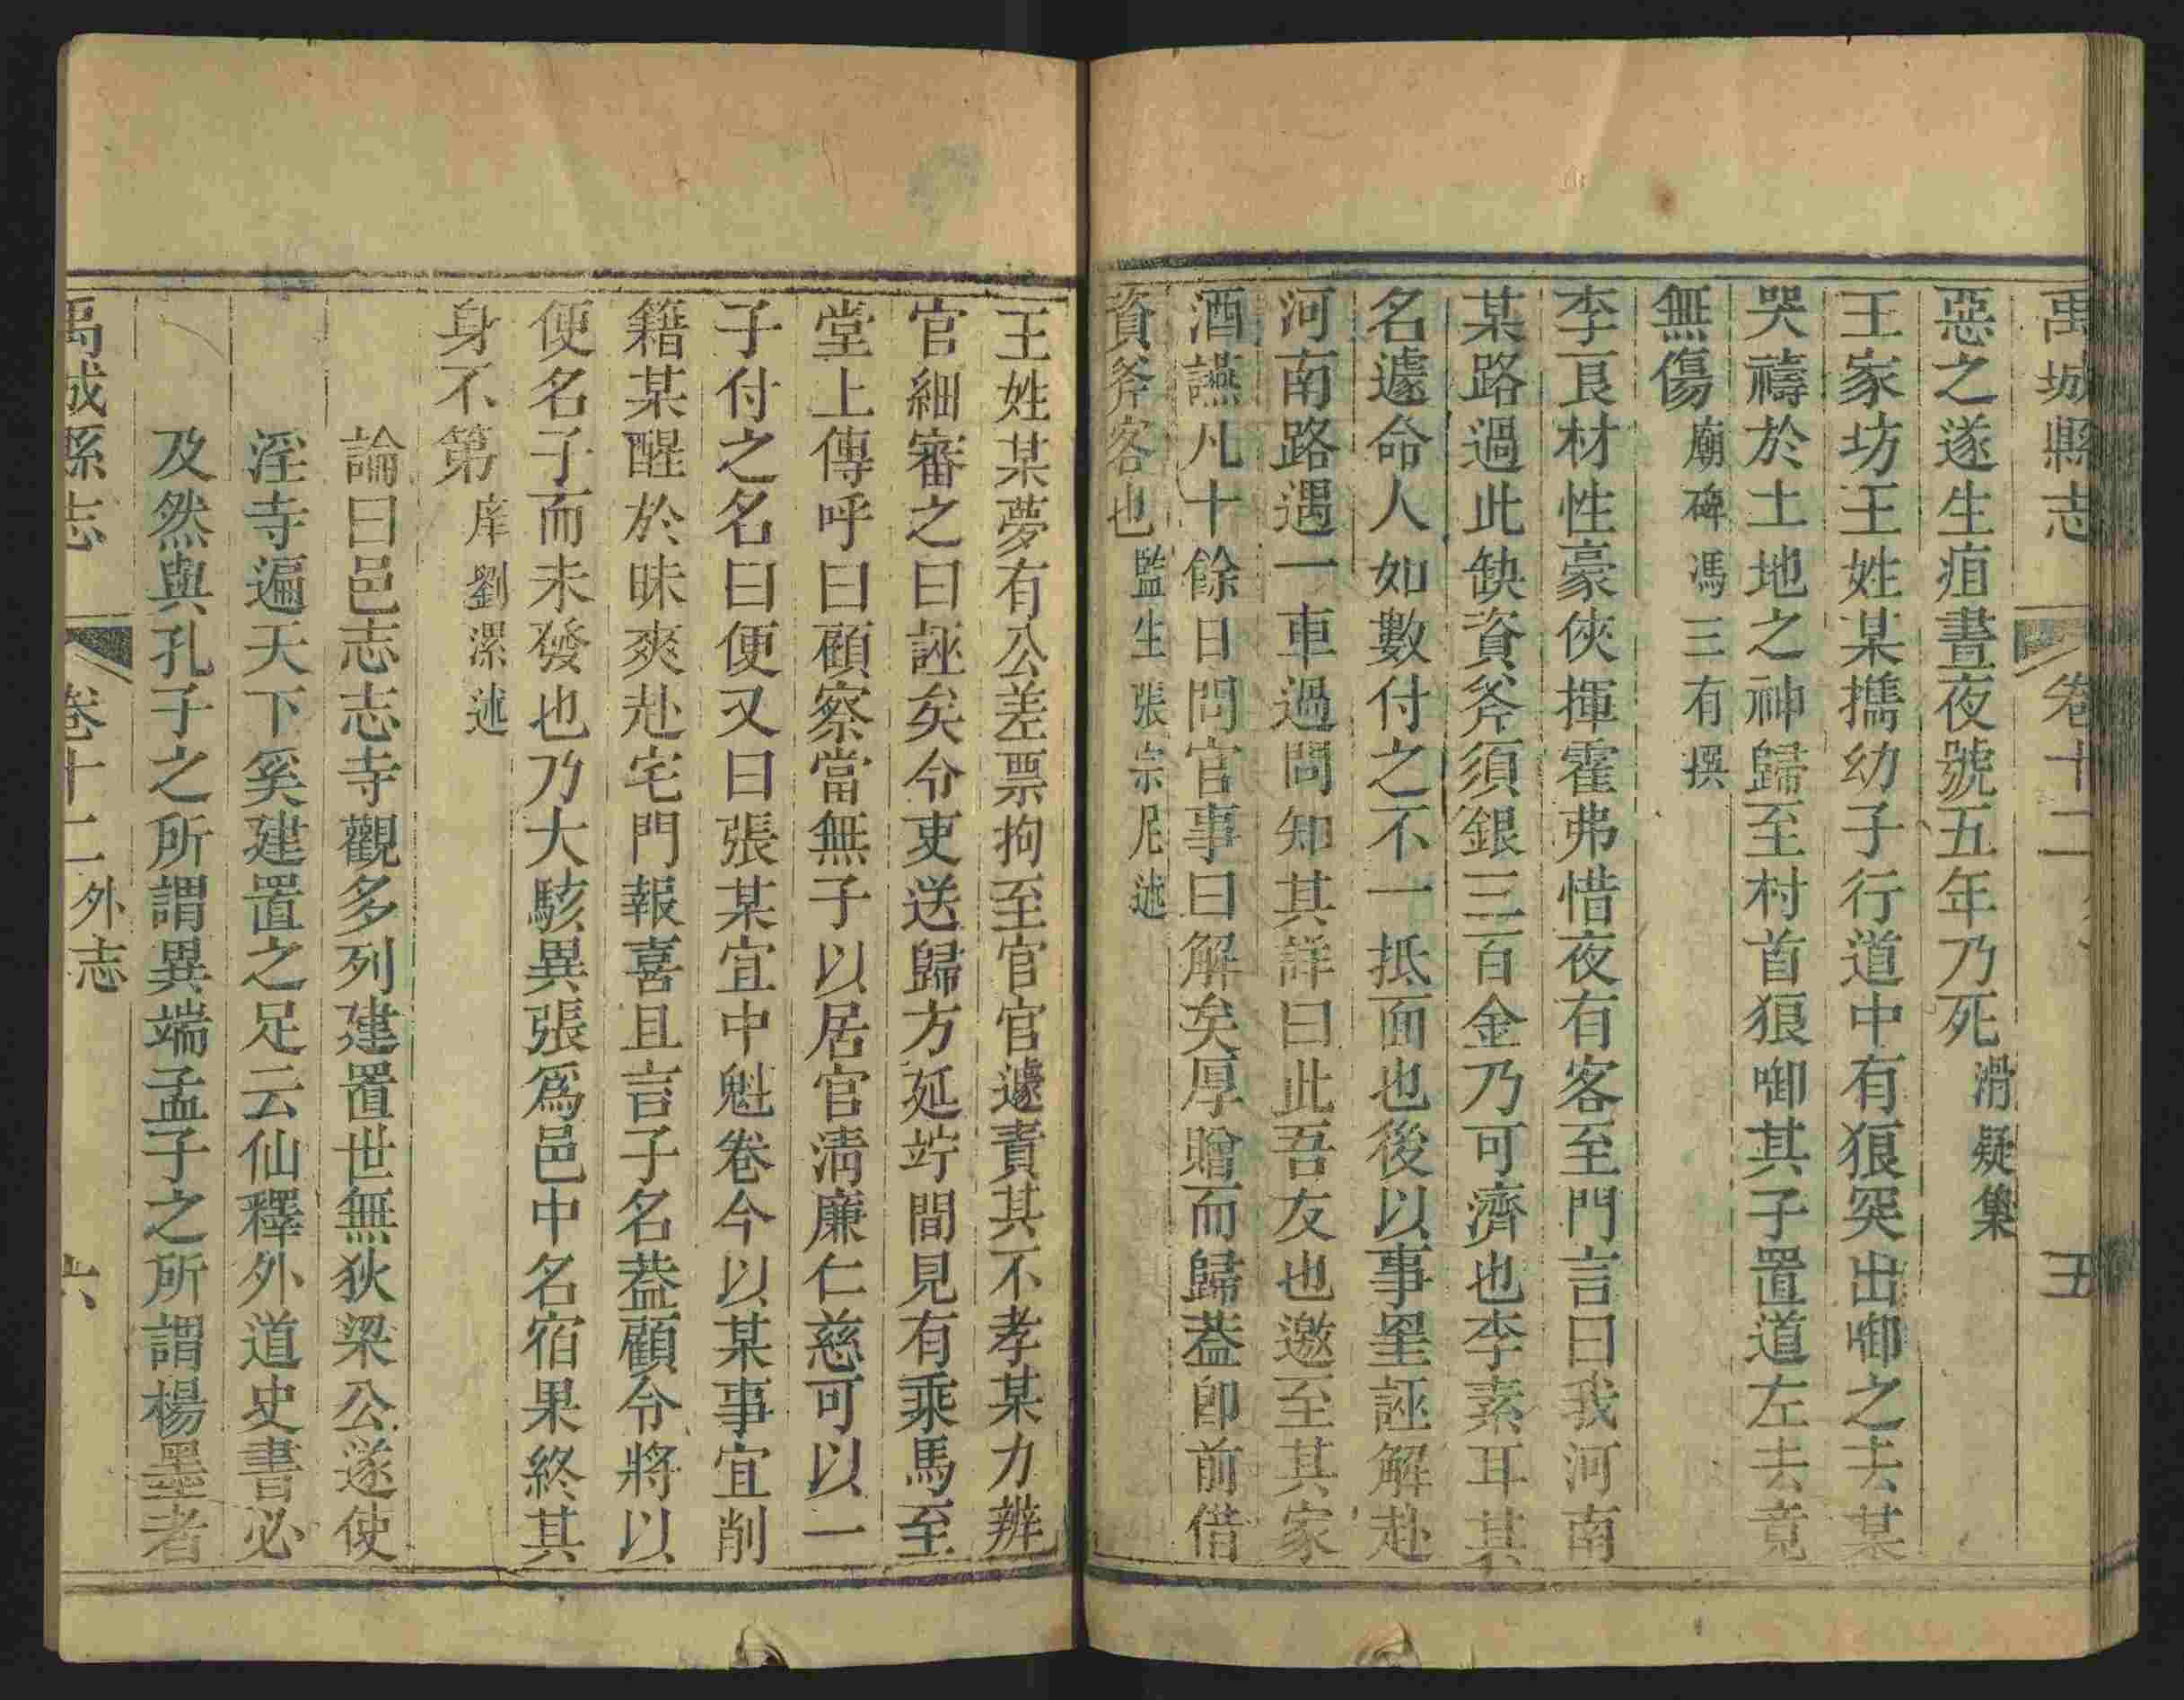 禹城縣志 卷十二 五
惡之遂生疽晝夜號五年乃死滑疑集
王家坊王姓某攜幼子行道中有狼突出啣之去某
哭禱於土地之神歸至村首狼啣其子置道左去竟
無傷廟碑馮三有撰
李良材性豪俠揮霍弗惜夜有客至門言曰我河南
某路過此缺資斧須銀三百金乃可濟也李素耳其
名遽命人如數付之不一抵面也後以事罣誣解赴
河南路遇一車過問知其詳曰此吾友也邀至其家
酒讌凡十餘日問官事曰解矣厚贈而歸葢卽前借
資斧客也監生張宗尼述
王姓某夢有公差票拘至官官遽責其不孝某力辨
官細審之曰誣矣令吏送歸方延竚間見有乘馬至
堂上傳呼曰顧察當無子以居官淸廉仁慈可以一
子付之名曰便又曰張某宜中魁卷今以某事宜削
籍某醒於昧爽赴宅門報喜且言子名葢顧令將以
便名子而未發也乃大駭異張爲邑中名宿果終其
身不第庠劉漯述
論曰邑志志寺觀多列建置世無狄梁公遂使
淫寺遍天下奚建置之足云仙釋外道史書必
及然與孔子之所謂異端孟子之所謂楊墨者
禹城縣志 卷十二 外志 六